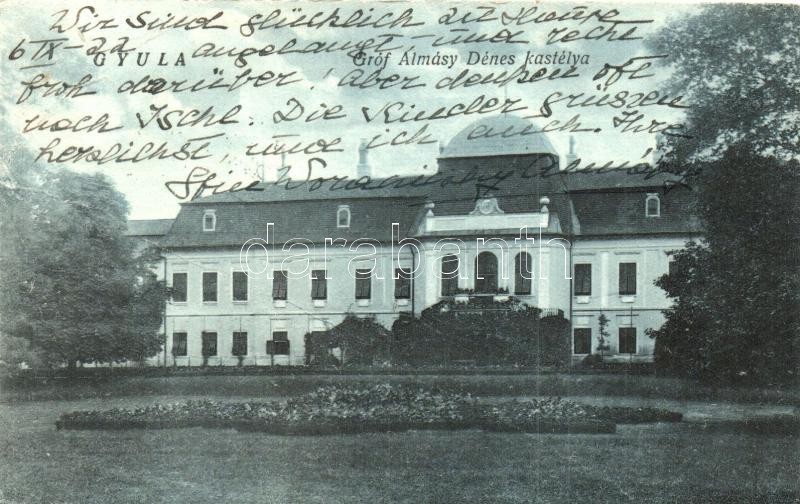 Wir sind glücklich zu Hause
6 IX - 22 angelangt - und recht
GYULA Gróf Álmásy Dénes kastélya
froh darüber! Aber denken oft
noch Ischl. Die Kinder grüssen
herzlichst, und ich auch. Ihre
Almásy
darabanth